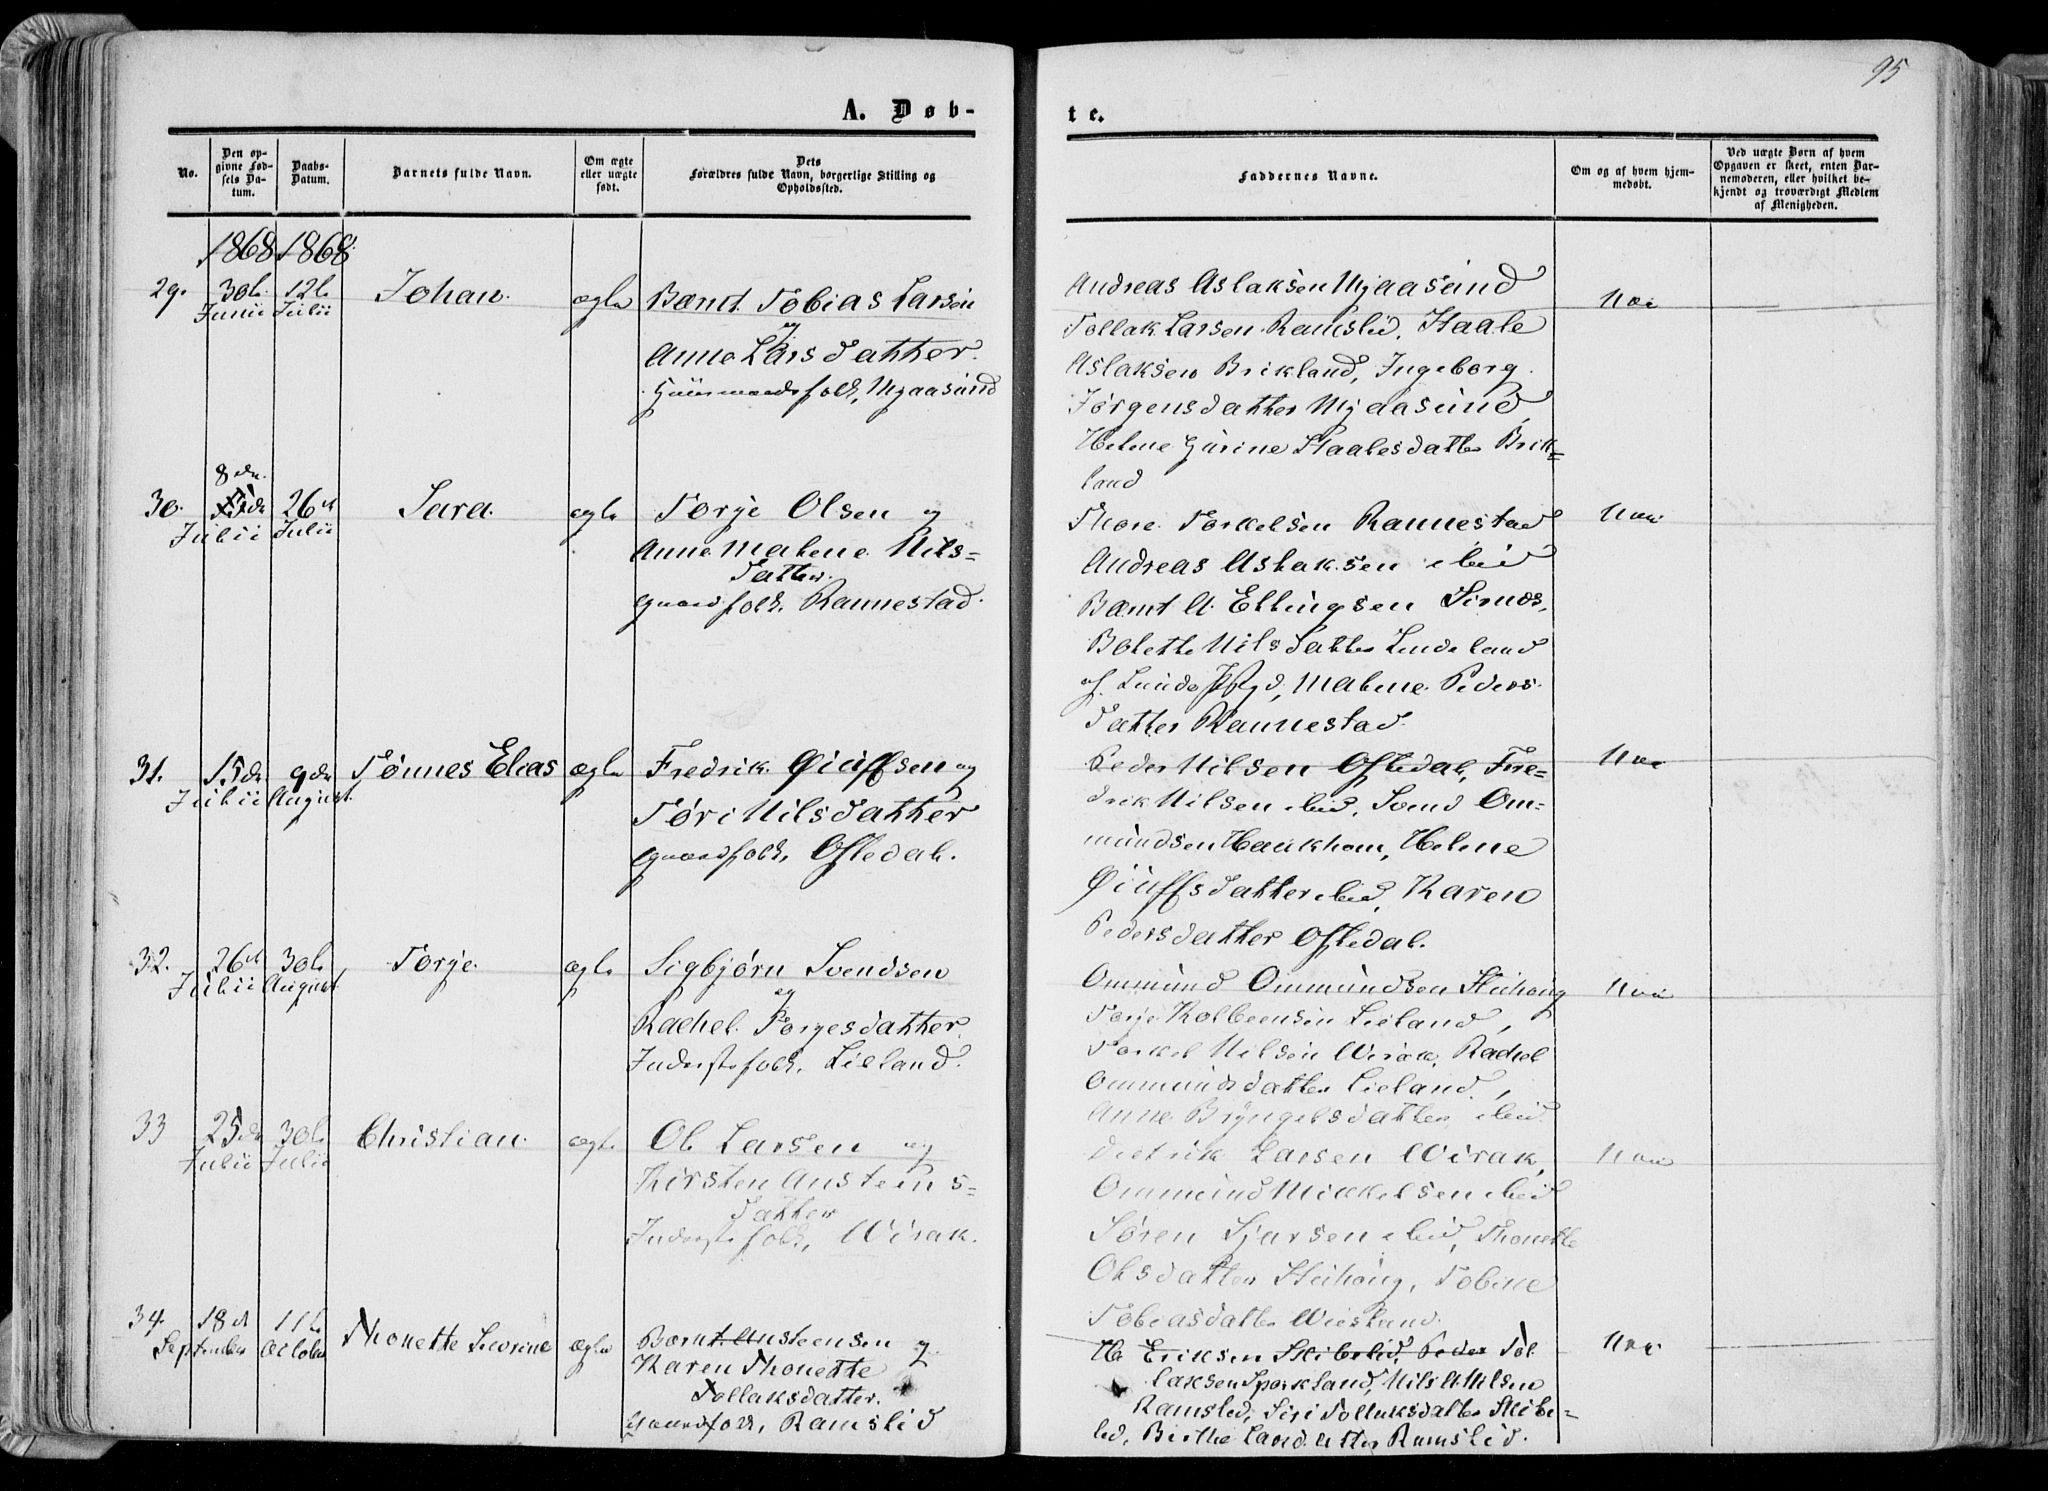 95
A. Døb-
te.
No.
Den op-
givne Fød-
sels Da-
tum.
Daabs-
Datum.
Barnets fulde Navn.
Om ægte
eller uægte
født.
Dets
Forældres fulde Navn, borgerlige Stilling og
Opholdssted.
Faddernes Navne.
Om og af hvem hjem-
medøbt.
Ved uægte Børn af hvem
Opgaven er skeet, enten Bar-
nemoderen, eller hvilket be-
kjendt og troværdigt Medlem
af Menigheden.
1868 1868
29. 30te 12te Johan. ægte Bernt Tobias Larsen
Junii Julii og
Anne Larsdatter.
Huusmandsfolk, Mjaasund
Andreas Aslaksen Mjaasund
Tollak Larsen Ramslid, Staale
Aslaksen Brikland, Ingeborg
Jørgensdatter Mjaasund,
Helene Gurine Staalesdatter Brik=
land
8de
30. 26de Sara. ægte Torje Olsen og
Julii Julii
Anne Malene Nils=
datter.
Gaardfolk, Rannestad.
Thore Torkelsen Rannestad
Andreas Aslaksen ibid
Bernt A. Ellingsen Sirnes,
Bolette Nilsdatter Lindeland
af Lunds Præstegjd, Malene Peders
datter Rannestad.
31. 15de 9de Tønnes Elias ægte Fredrik Øiuffsen og
Julii August.
Tøri Nilsdatter
Gaardfolk, Oftedal.
Peder Nilsen Oftedal, Fre=
drik Nilsen ibid, Svend Om=
mundsen Haukhom, Helene
Øiuffsdatter ibid, Karen
Pedersdatter Oftedal.
32. 26de 30te Torje. ægte Sigbjørn Svendsen
Julii August og
Rachel Torjesdatter
Inderstfolk, Lieland.
Ommund Ommundsen
Torje Kolbeensen Lieland,
Torkel Nilsen Wirak, Rachel
Ommundsdatter Lieland,
Anne Bryngelsdatter ibid.
33 25de 30te Christian. ægte Ole Larsen og
Julii Julii
Kirsten Austeens=
datter
Inderstfolk, Wirak.
Diedrik Larsen Wirak,
Ommund Mikkelsen ibid
Søren Sjursen ibid, Thonette
Olsdatter, Tobine
Tobiasdatter
34. 18de 11te Thonette Severine ægte Bernt Austeensen og
September October
Karen Thonette
Tollaksdatter.
Gaardfolk, Ramslid
Ole Eriksen Skibelid, Peder Tol
laksen Sporkland, Nils A. Nilsen
Ramslid, Siri Tollaksdatter Skibe=
lid, Birthe Larsdatter Ramslid.